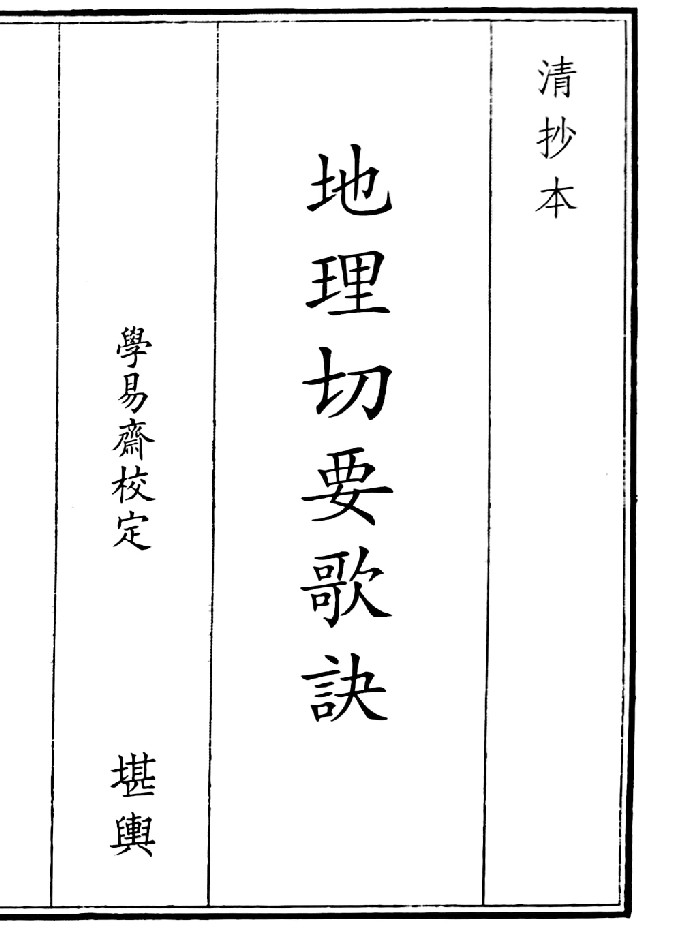 清抄本
地理切要歌訣
學易齋校定
堪輿